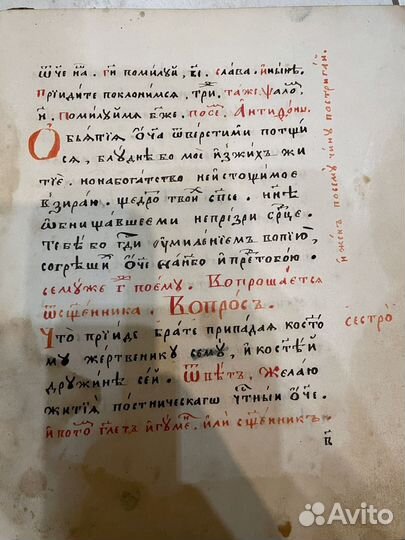 Ѿч҃е на́ш . Гⷭ҇и поми́луй , в҃і . сла́ва . и҆ ны́нѣ .
Прїиди́те поклони́мся , три́ . та́же ѱало́м
н҃ . Поми́луй мѧ бж҃е . посе́м Антифо́ны .
Объѧ́тїѧ ѻ҆́ч҃а ѿве́рсти ми потщи́
сѧ , блу́днѣ бо моѐ и҆зжи́хъ жи
тїѐ , но на бога́тство неистощи́мое
взира́ю . щедро́т твои́х сп҃се . ны́нѣ
ѡ҆бнища́вшее ми непре́зри се́рдце .
тебѣ́ бо гд҇и оумиле́нїем вопїю̀ ,
согрѣши́х ѻ҆́ч҃е на нб҃о и҆ пре́д тобо́ю .
се́мꙋже г҃ пое́мꙋ . Вопроша́ется
ѿ сщ҃е́нника . Вопро́съ .
Что̀ прїи́де бра́те припа́даѧ ко ст҃о
мꙋ же́ртвеникꙋ семꙋ̀ , и҆ ко ст҃ѣ́й
дрꙋжи́нѣ се́й . Ѿвѣ́т , Жела́ю
житїѧ̀ по́стническагѡ ч҇тны́и ѻ҆́ч҃е .
и҆ пото́м гл҃етъ и҆гꙋ́мен , и҆лѝ сщ҃е́нникъ
в҃
сестро̀
и҆ же́нъ по семꙋ̀ чи́нꙋ пострига́й .
Avito